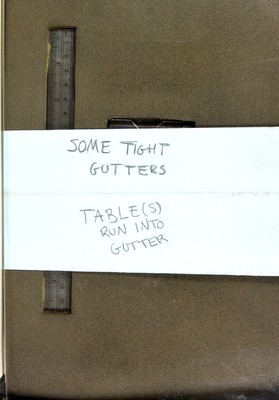 SOME TIGHT
GUTTERS
TABLE(S)
RUN INTO
GUTTER